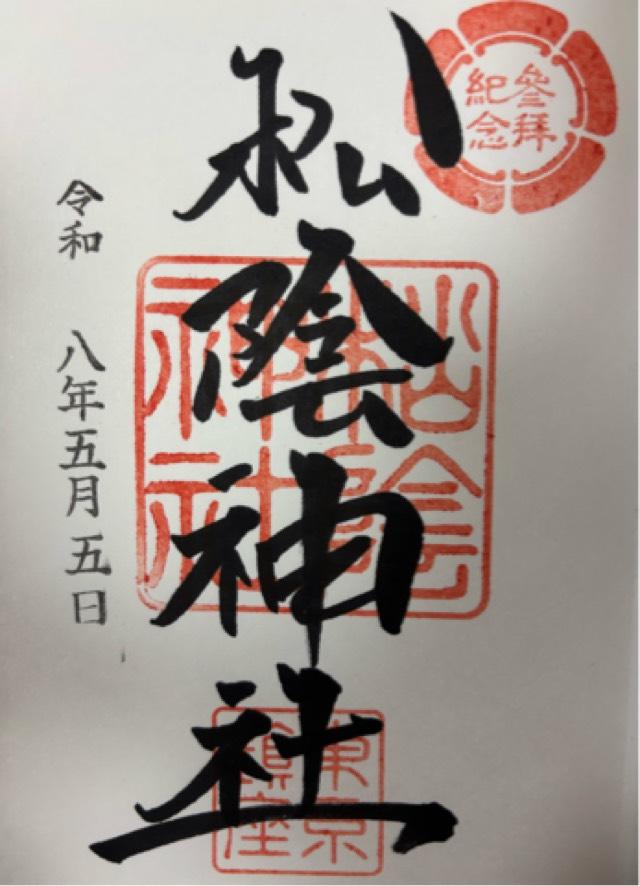 參拜
紀念
松陰神社
松陰
神社
東京
鎮座
令和 八年五月五日